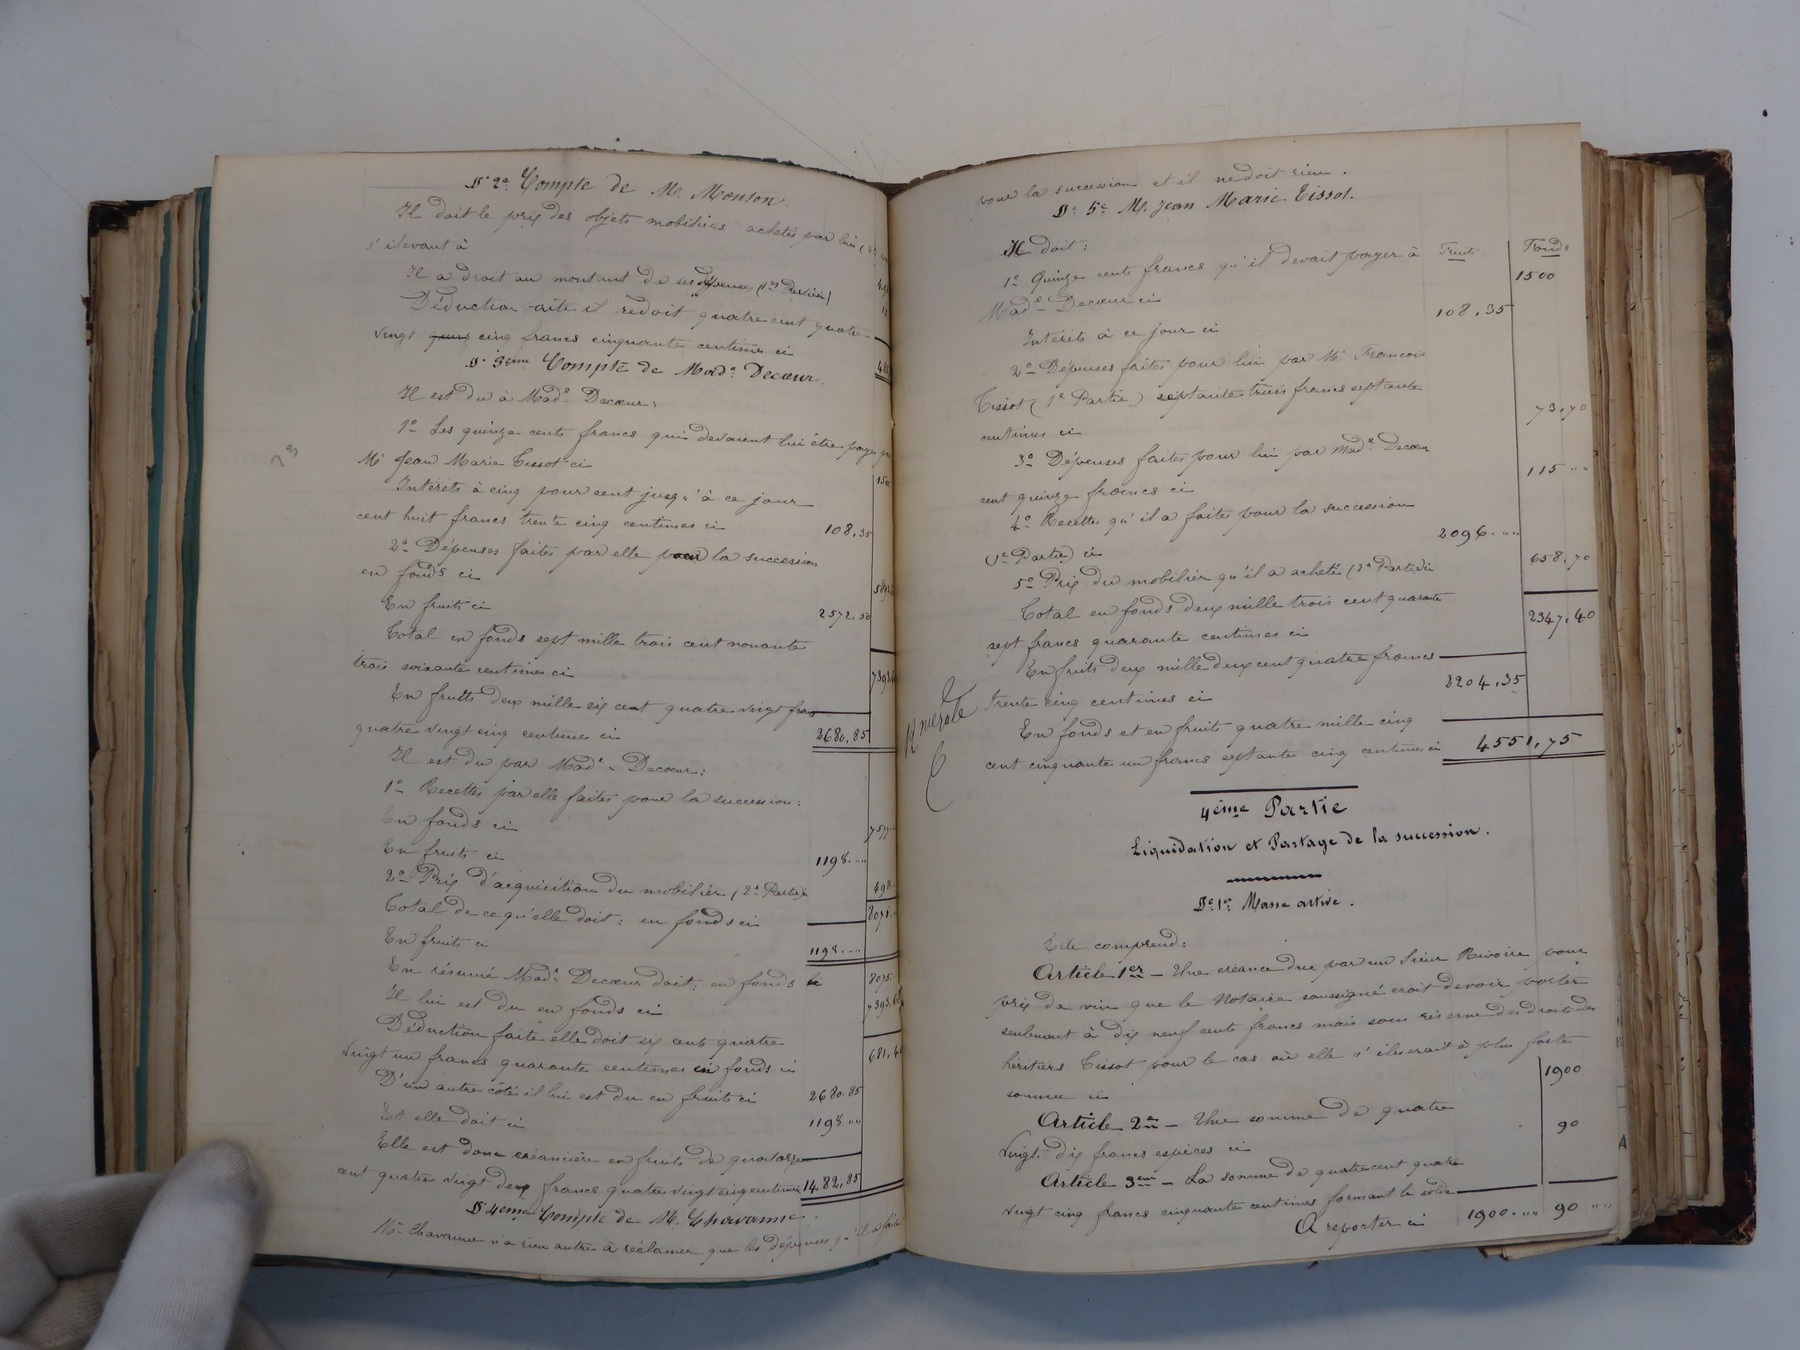 D. 2e Compte de M. Monton.
Il doit le prix des objets mobiliers achetés par lui
s'élevant à
Il a droit au montant de ses dépenses (1re Partie)
Déduction faite il redoit quatre cent quatre
vingt cinq francs cinquante centimes ci
D. 3eme Compte de Made Decœur.
Il est du à Made Decœur:
1o Les quinze cents francs qui devaient lui être payés par
Mr Jean Marie Tissot ci 150
Intérêts à cinq pour cent jusqu'à ce jour
cent huit francs trente cinq centimes ci 108,35
2o Dépenses faites par elle pour la succession
en fonds ci 5893
En fruits ci 2572,50
Total en fonds sept mille trois cent nonante
trois soixante centimes ci 7393,6
En fruits deux mille six cent quatre vingt francs
quatre vingt cinq centimes ci 2680,85
Il est du par Made Decœur:
1o Recettes par elle faites pour la succession:
En fonds ci 7577
En fruits ci 1198. "
2o Prix d'acquisition du mobilier (2e Partie) ci 498
Total de ce qu'elle doit: en fonds ci 8075
En fruits ci 1198. "
En résumé Made Decœur doit: en fonds ci 8075
Il lui est du en fonds ci 7393,60
Déduction faite elle doit six cent quatre
vingt un francs quarante centimes en fonds ci 681,40
D'un autre côté il lui est du en fruits ci 2680.85
Et elle doit ci 1198 "
Elle est donc créancière en fruits de quatorze
cent quatre vingt deux francs quatre vingt cinq centimes 1482,85
D. 4eme Compte de M. Chavanne.
Mr Chavanne n'a rien autre à réclamer que les dépenses qu'il a faites
pour la succession et il ne doit rien.
D. 5e M. Jean Marie Tissot.
Il doit: Fruits Fonds
1o Quinze cents francs qu'il devait payer à
Made Decœur ci 1500
Intérêts à ce jour ci 108,35
2o Dépenses faites pour lui par Mr François
Tissot (1e Partie) septante trois francs septante
centimes ci 73,70
3o Dépenses faites pour lui par Made Decœur
cent quinze francs ci 115 "
4o Recettes qu'il a faites pour la succession
(1e Partie) ci 2096. "
5o Prix du mobilier qu'il a acheté (2e Partie) ci 658,70
Total en fonds deux mille trois cent quarante
sept francs quarante centimes ci 2347,40
En fruits deux mille deux cent quatre francs
trente cinq centimes ci 2204,35
En fonds et en fruits quatre mille cinq
cent cinquante un francs septante cinq centimes ci 4551,75
4éme Partie
Liquidation et Partage de la succession.
D. 1er Masse active.
Elle comprend:
Article 1er – Une créance due par un Sieur Rivoire pour
prix de vin que le Notaire soussigné croit devoir porter
seulement à dix neuf cents francs mais sous réserve des droits des
héritiers Tissot pour le cas où elle s'élèverait à plus forte
somme ci 1900
Article 2e – Une somme de quatre
vingt dix francs espèces ci 90
Article 3eme – La somme de quatre cent quatre
vingt cinq francs cinquante centimes formant le solde
A reporter ci 1900. " 90 "